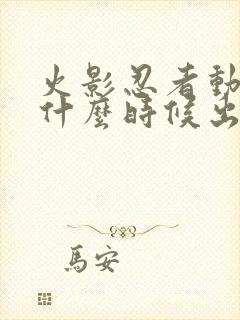 火影忍者動
什麼時候出
馬安